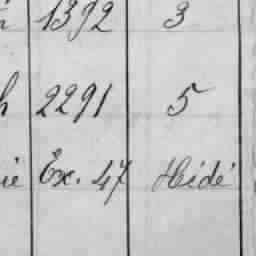 1392 3
h 2291 5
ie Ex. 47 Hédé